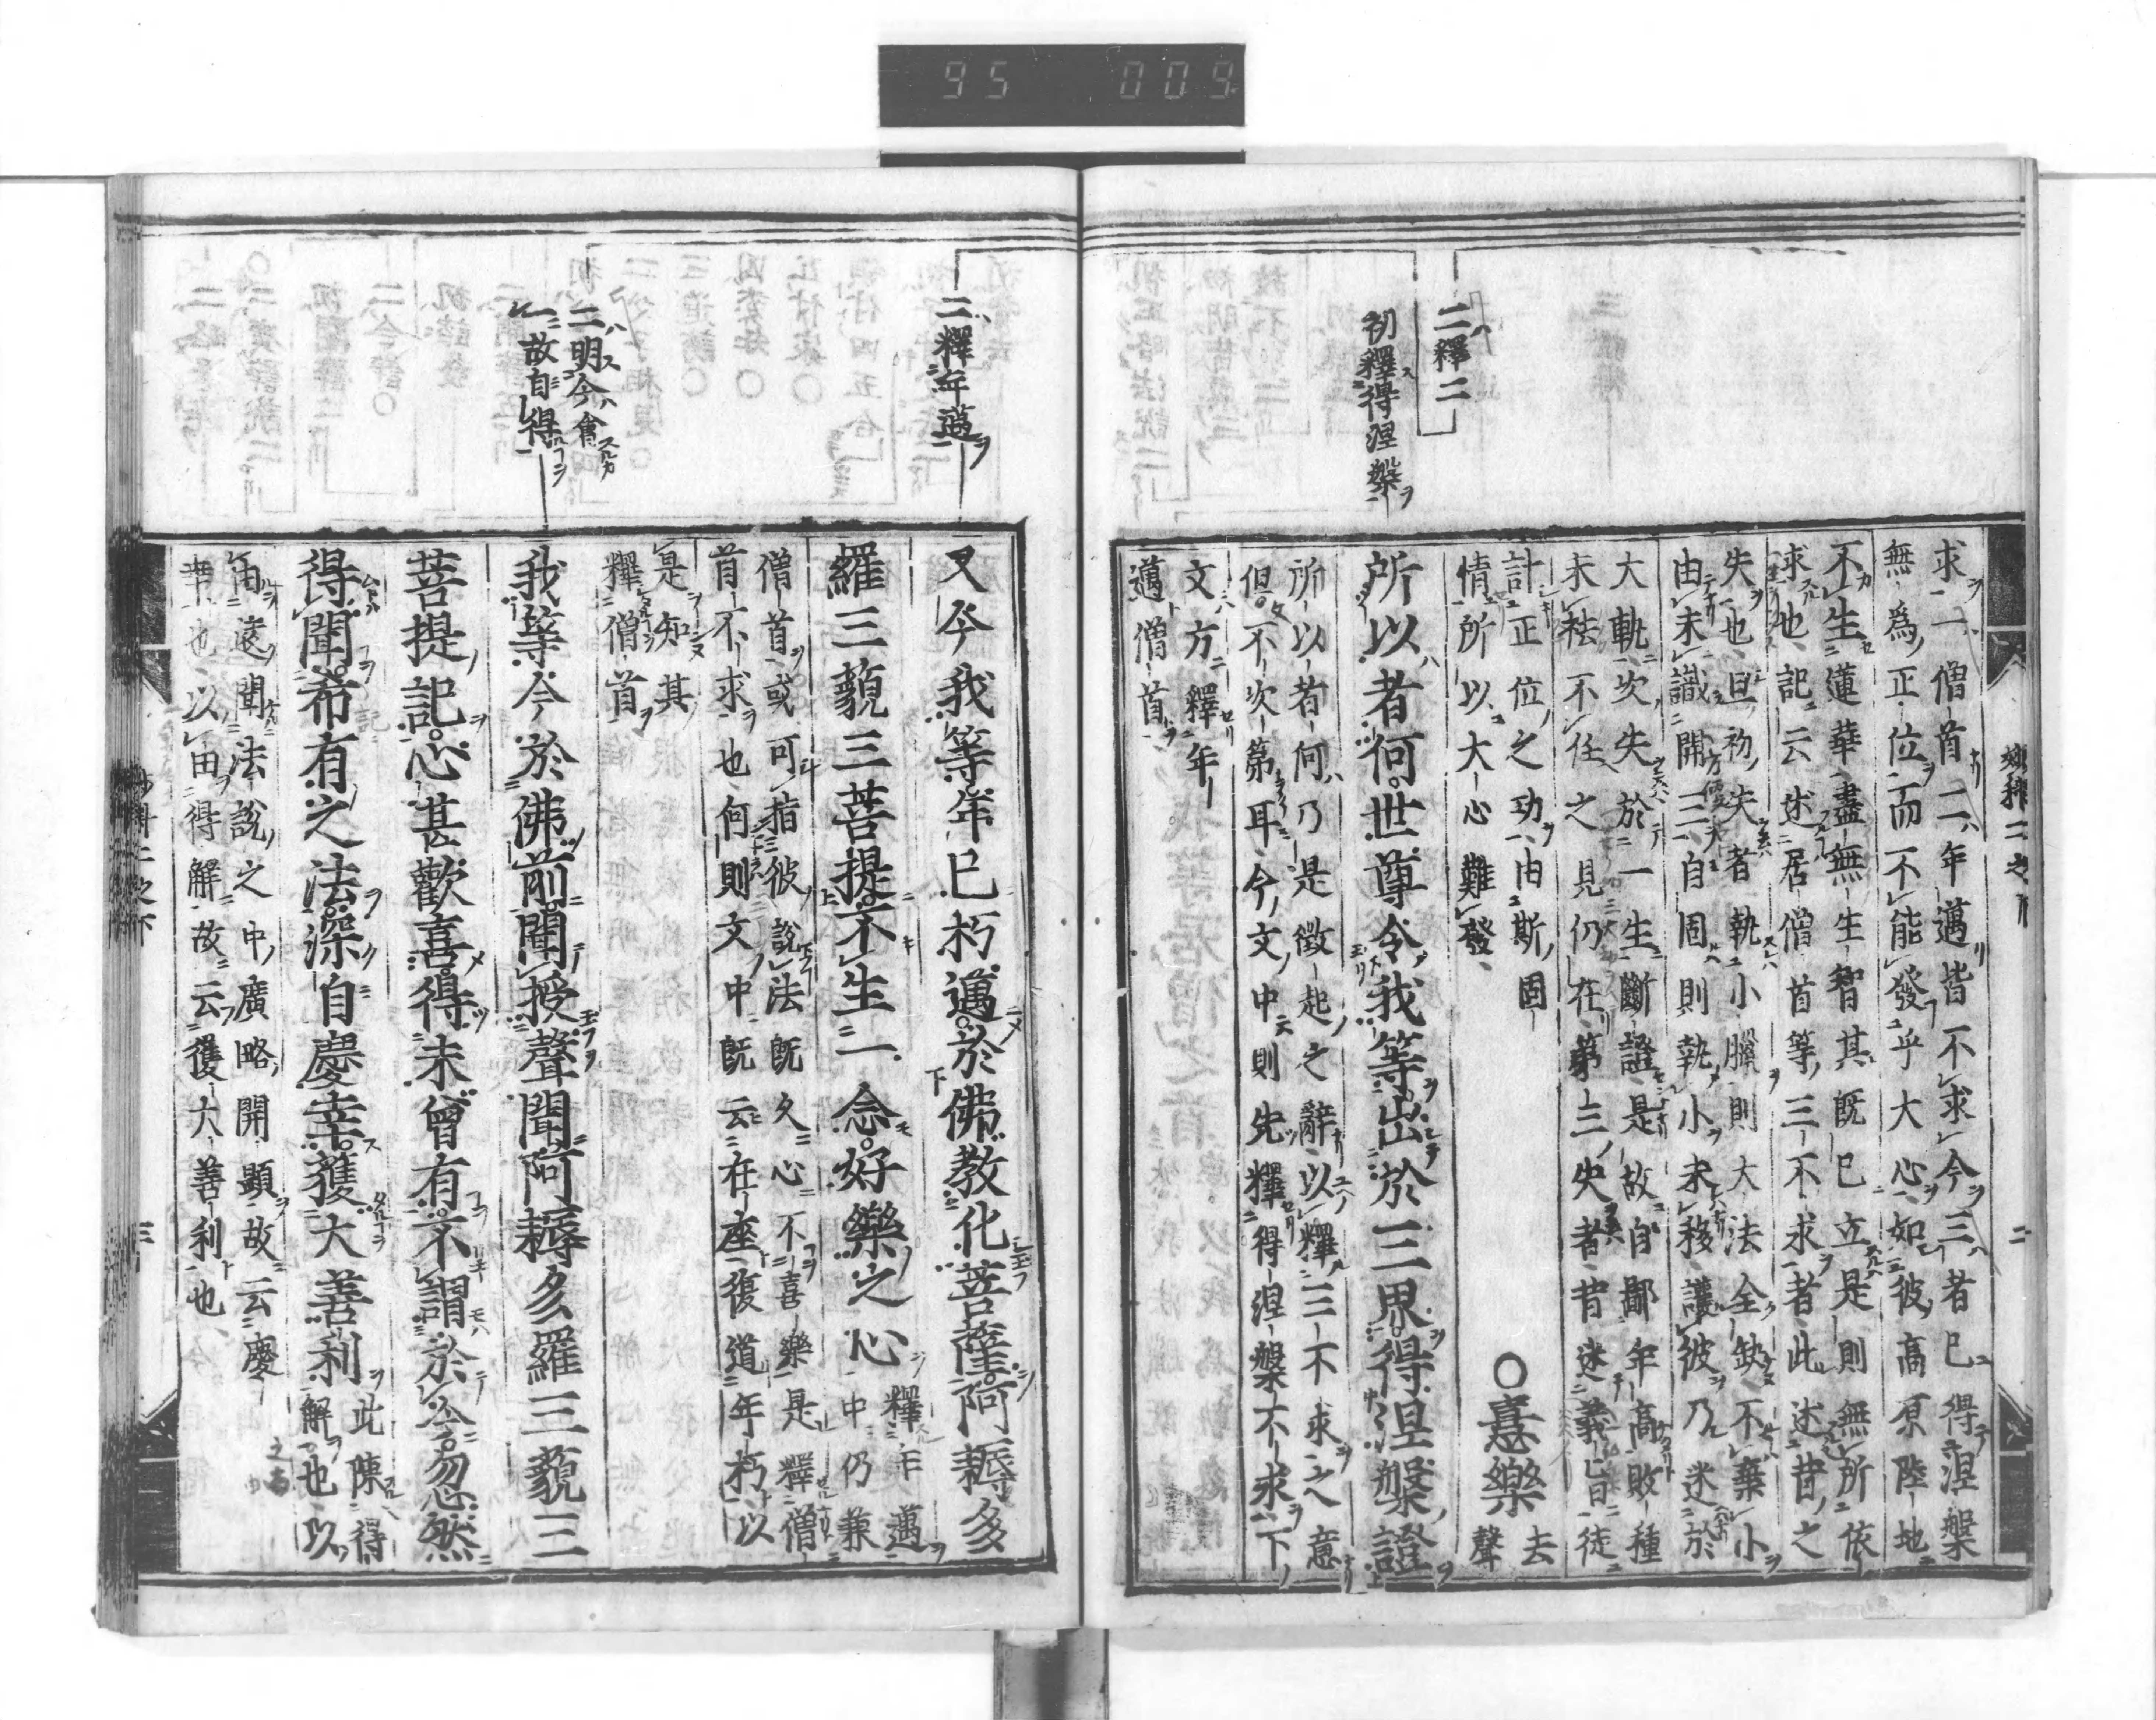 95 009
二釋三
初釋得涅槃
求一僧首二年邁皆不求今三者已得涅槃
無爲正位而不能發乎大心如彼高原陸地
不生蓮華盡無生智其既已立是則無所依
求也記云述居僧首等三不求者此述昔之
失也且初失者執小臘則大法全缺不棄小
由未識開三自固則執小未移護彼乃迷於
大軌次失於一生斷證是故自鄙年高敗種
未袪不任之見仍在第三失者昔迷義旨徒
計正位之功由斯固
情所以大心難發
○憙樂
去
聲
所以者何世尊令我等出於三界得涅槃證
所以者何乃是徵起之辭以釋三不求之意
但不次第耳今文中則先釋得涅槃不求下
文方釋年
邁僧首
二釋年邁
二明今會
一故自得
又今我等年已朽邁於佛教化菩薩阿耨多
羅三藐三菩提不生一念好樂之心
釋年邁
中仍兼
僧首或可指彼說法既久心不喜樂是釋僧
首不求也何則文中既云在座復道年朽以
是知其
釋僧首
我等今於佛前聞授聲聞阿耨多羅三藐三
菩提記心甚歡喜得未曾有不謂於今忽然
得聞希有之法深自慶幸獲大善利
此陳得
解也以
由遠聞法說之中廣略開顯故云慶
幸也以由得解故云獲大善利也